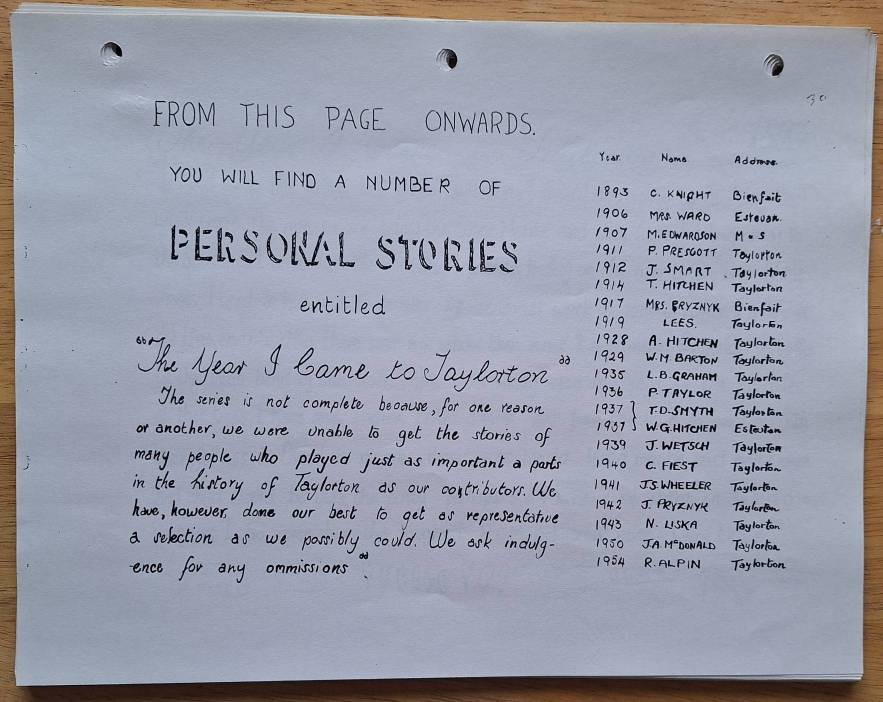 30
FROM THIS PAGE ONWARDS.
YOU WILL FIND A NUMBER OF
PERSONAL STORIES
entitled
"The Year I Came to Taylorton"
The series is not complete because, for one reason
or another, we were unable to get the stories of
many people who played just as important a parts
in the history of Taylorton as our contributors. We
have, however, done our best to get as representative
a selection as we possibly could. We ask indulg-
-ence for any ommissions".
Year Name Address
1893 C. KNIGHT Bienfait
1906 MRS. WARD Estevan.
1907 M. EDWARDSON M + S
1911 P. PRESCOTT Taylorton
1912 J. SMART Taylorton
1914 T. HITCHEN Taylorton
1917 MRS. PRYZNYK Bienfait
1919 LEES. Taylorton
1928 A. HITCHEN Taylorton
1929 W.M. BARTON Taylorton
1935 L.B. GRAHAM Taylorton
1936 P. TAYLOR Taylorton
1937 T.D. SMYTH Taylorton
1937 W.G. HITCHEN Estevan
1939 J. WETSCH Taylorton
1940 C. FIEST Taylorton
1941 J.S. WHEELER Taylorton
1942 J. PRYZNYK Taylorton
1943 N. LISKA Taylorton
1950 J.A. McDONALD Taylorton
1954 R. ALPIN Taylorton